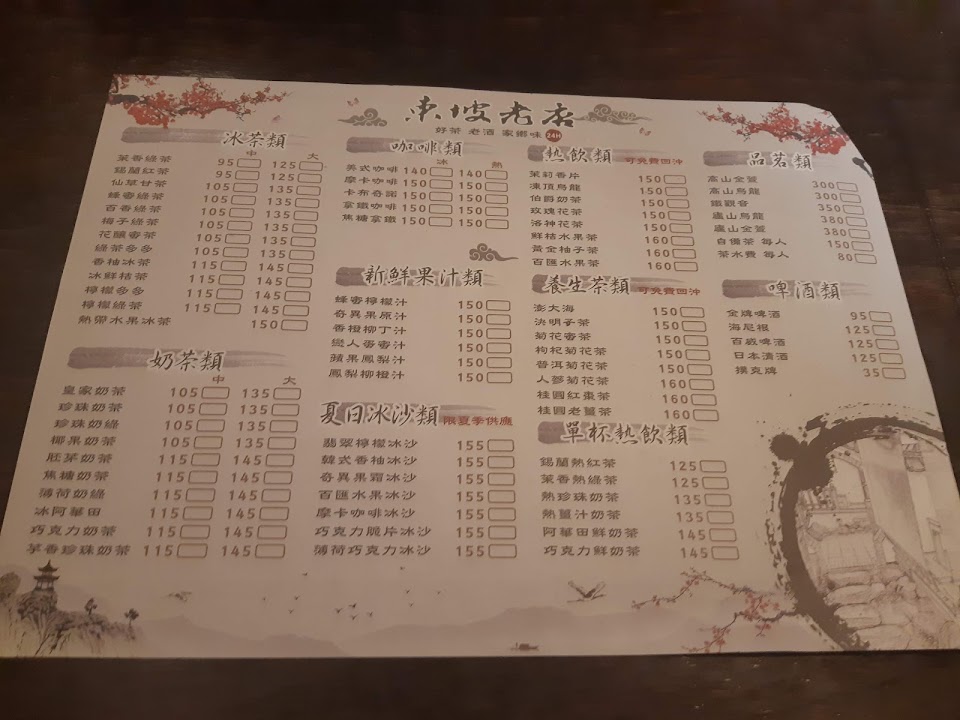 東坡老店
好茶 老酒 家鄉味 24H
冰茶類
中 大
茉香綠茶 95 125
錫蘭紅茶 95 125
仙草甘茶 105 135
蜂蜜綠茶 105 135
百香綠茶 105 135
梅子綠茶 105 135
花釀蜜茶 105 135
綠茶多多 105 135
香柚冰茶 115 145
冰鮮桔茶 115 145
檸檬多多 115 145
檸檬綠茶 115 145
熱帶水果冰茶 150
奶茶類
中 大
皇家奶茶 105 135
珍珠奶茶 105 135
珍珠奶綠 105 135
椰果奶茶 105 135
胚芽奶茶 115 145
焦糖奶茶 115 145
薄荷奶綠 115 145
冰阿華田 115 145
巧克力奶茶 115 145
芋香珍珠奶茶 115 145
咖啡類
冰 熱
美式咖啡 140 140
摩卡咖啡 150 150
卡布奇諾 150 150
拿鐵咖啡 150 150
焦糖拿鐵 150 150
新鮮果汁類
蜂蜜檸檬汁 150
奇異果原汁 150
香橙柳丁汁 150
戀人蛋蜜汁 150
蘋果鳳梨汁 150
鳳梨柳橙汁 150
夏日冰沙類 限夏季供應
翡翠檸檬冰沙 155
韓式香柚冰沙 155
奇異果霜冰沙 155
百匯水果冰沙 155
摩卡咖啡冰沙 155
巧克力脆片冰沙 155
薄荷巧克力冰沙 155
熱飲類 可免費回沖
茉莉香片 150
凍頂烏龍 150
伯爵奶茶 150
玫瑰花茶 150
洛神花茶 150
鮮桔水果茶 160
黃金柚子茶 160
百匯水果茶 160
養生茶類 可免費回沖
澎大海 150
決明子茶 150
菊花蜜茶 150
枸杞菊花茶 150
普洱菊花茶 150
人蔘菊花茶 160
桂圓紅棗茶 160
桂圓老薑茶 160
單杯熱飲類
錫蘭熱紅茶 125
茉香熱綠茶 125
熱珍珠奶茶 135
熱薑汁奶茶 135
阿華田鮮奶茶 145
巧克力鮮奶茶 145
品茗類
高山金萱 300
高山烏龍 300
鐵觀音 350
廬山烏龍 380
廬山金萱 380
自備茶 每人 150
茶水費 每人 80
啤酒類
金牌啤酒 95
海尼根 125
百威啤酒 125
日本清酒 125
撲克牌 35